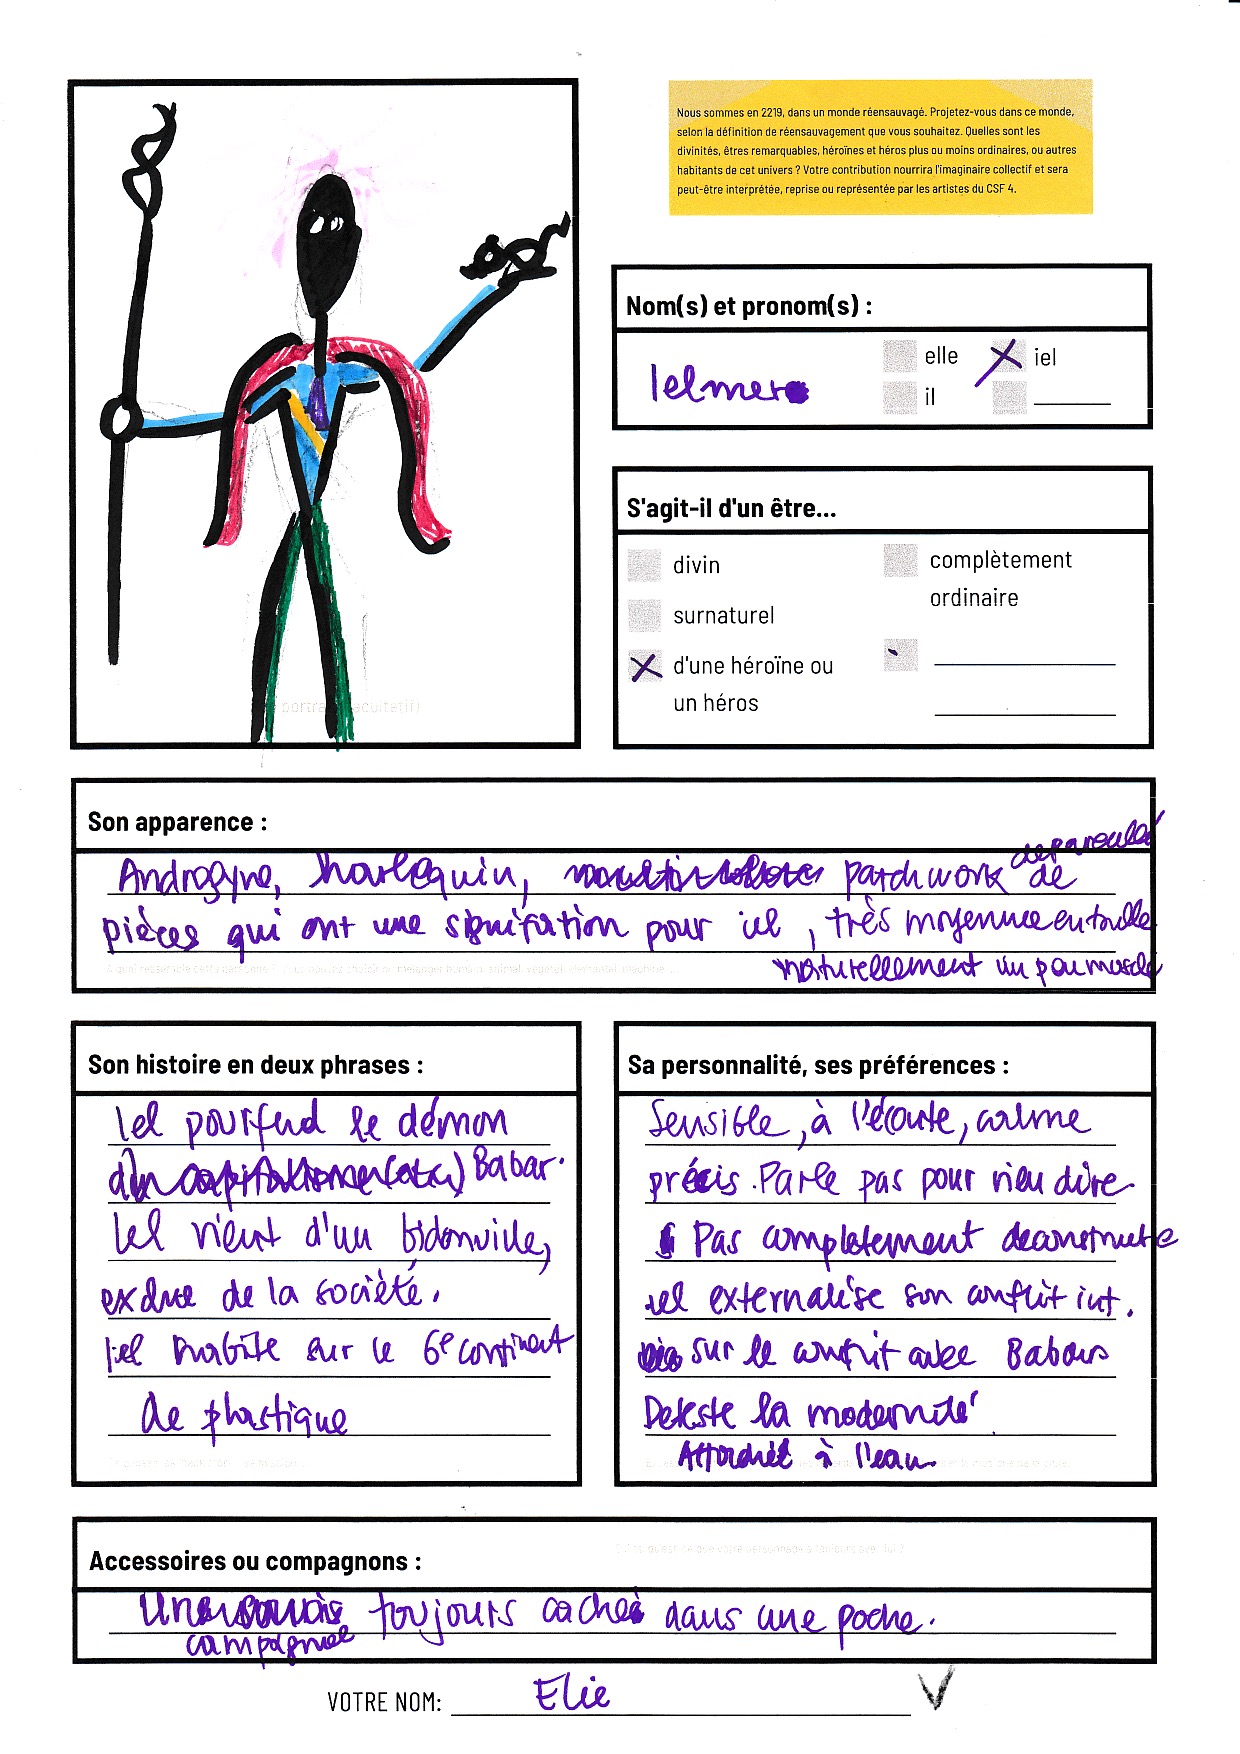 Nous sommes en 2219, dans un monde réensauvagé. Projetez-vous dans ce monde,
selon la définition de réensauvagement que vous souhaitez. Quelles sont les
divinités, êtres remarquables, héroïnes et héros plus ou moins ordinaires, ou autres
habitants de cet univers ? Votre contribution nourrira l'imaginaire collectif et sera
peut-être interprétée, reprise ou représentée par les artistes du CSF 4.
Nom(s) et pronom(s) :
Ielmer
elle
iel
il
S'agit-il d'un être...
divin
complètement
ordinaire
surnaturel
d'une héroïne ou
un héros
Son apparence :
Androgyne, harlequin, patchwork de
pièces qui ont une signifation pour iel, très moyenne en taille
naturellement un peu musclé
Son histoire en deux phrases :
Iel pourfend le démon
Babar.
Iel vient d'un bidonville,
exclue de la société.
Iel habite sur le 6e continent
de plastique
Sa personnalité, ses préférences :
Sensible, à l'écoute, calme
précis. Parle pas pour rien dire
Pas completement deconstruite
iel externalise son conflit int.
sur le conflit avec Babar
Deteste la modernité
à l'eau.
Accessoires ou compagnons :
Une souris toujours caché dans une poche.
campagne
VOTRE NOM: Elie